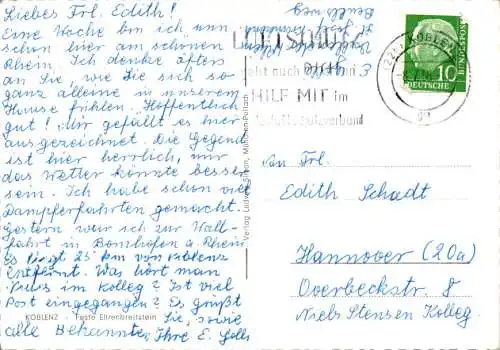 Liebes Frl. Edith!
Eine Woche bin ich nun
schon hier am schönen
Rhein. Ich denke öfters
an Sie, wie Sie sich so
ganz alleine in unserem
Hause fühlen. Hoffentlich
gut! Mir gefällt es hier
ausgezeichnet. Die Gegend
ist hier herrlich, nur
das Wetter könnte besser
sein. Ich habe schon viel
Dampferfahrten gemacht.
Gestern war ich zur Wall-
fahrt in Bornhofen a. Rhein
Es liegt 25 km von Koblenz
entfernt. Was hört man
Neues im Kolleg? Ist viel
Post eingegangen? Es grüßt
Sie, sowie
alle Bekannten, Ihre E.
KOBLENZ - Feste Ehrenbreitstein
Verlag Ludwig Simon, München-Pullach
LUFTSCHUTZ
geht auch DICH an
HILF MIT im
KOBLENZ
10
DEUTSCHE
BUNDESPOST
An Frl.
Edith Schadt
Hannover (20a)
Overbeckstr. 8
Niels Stensen Kolleg.